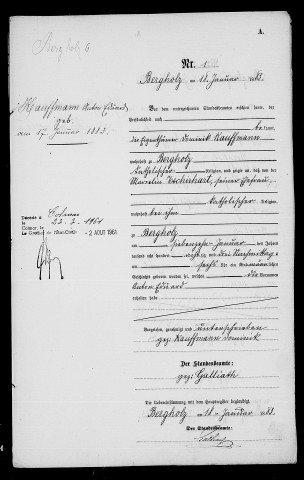 A.
Bergholz 6
Nr. 1
Bergholz am 18. Januar 1883.
Kauffmann Anton Eduard
geb.
am 17. Januar 1883.
Vor dem unterzeichneten Standesbeamten erschien heute, der
Persönlichkeit nach
kannt,
der Eigenthümer Dominik Kauffmann
wohnhaft zu Bergholz
katholischer Religion, und zeigte an, daß von der
seiner Ehefrau,
katholischer Religion,
wohnhaft bei ihm
zu Bergholz
am siebenzehn Januar
des Jahres
tausend acht hundert achtzig und drei Nachmittags
um sechs Uhr ein Kind männlichen
Geschlechts geboren worden sei, welches die Vornamen
Anton Eduard
erhalten habe
Décédé à Colmar
le 23-7-1961
Colmar, le 2 AOUT 1961
Le Greffier
Vorgelesen, genehmigt und unterschrieben
gez: Kauffmann Dominik
Der Standesbeamte:
gez: Galliath
Die Uebereinstimmung mit dem Hauptregister beglaubigt.
Bergholz am 18 Januar 1883.
Der Standesbeamte: